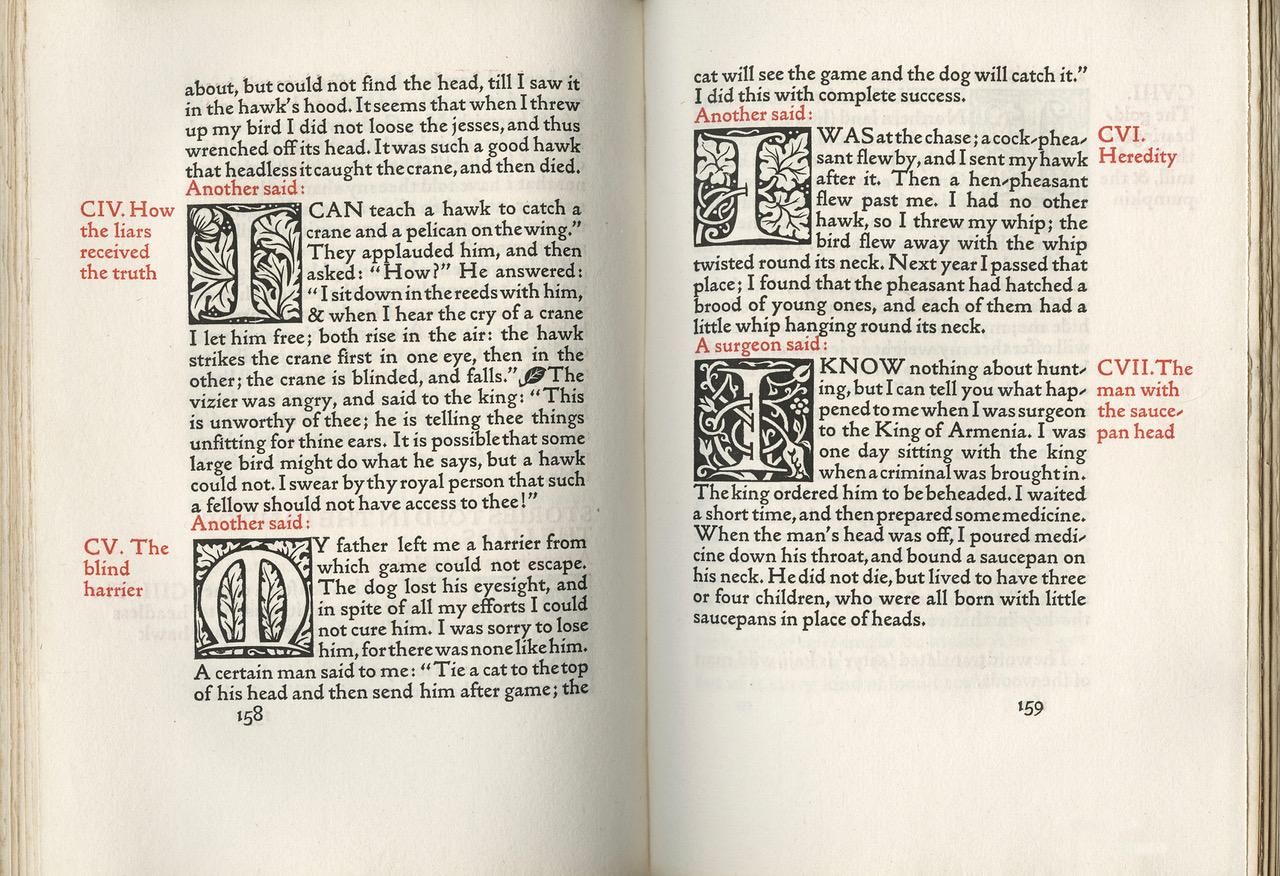 about, but could not find the head, till I saw it
in the hawk's hood. It seems that when I threw
up my bird I did not loose the jesses, and thus
wrenched off its head. It was such a good hawk
that headless it caught the crane, and then died.
Another said:
CIV. How
the liars
received
the truth
I CAN teach a hawk to catch a
crane and a pelican on the wing.”
They applauded him, and then
asked: “How?” He answered:
“I sit down in the reeds with him,
& when I hear the cry of a crane
I let him free; both rise in the air: the hawk
strikes the crane first in one eye, then in the
other; the crane is blinded, and falls.” The
vizier was angry, and said to the king: “This
is unworthy of thee; he is telling thee things
unfitting for thine ears. It is possible that some
large bird might do what he says, but a hawk
could not. I swear by thy royal person that such
a fellow should not have access to thee!”
Another said:
CV. The
blind
harrier
MY father left me a harrier from
which game could not escape.
The dog lost his eyesight, and
in spite of all my efforts I could
not cure him. I was sorry to lose
him, for there was none like him.
A certain man said to me: “Tie a cat to the top
of his head and then send him after game; the
158
cat will see the game and the dog will catch it.”
I did this with complete success.
Another said:
CVI.
Heredity
I WAS at the chase; a cock-phea-
sant flew by, and I sent my hawk
after it. Then a hen-pheasant
flew past me. I had no other
hawk, so I threw my whip; the
bird flew away with the whip
twisted round its neck. Next year I passed that
place; I found that the pheasant had hatched a
brood of young ones, and each of them had a
little whip hanging round its neck.
A surgeon said:
CVII. The
man with
the sauce-
pan head
I KNOW nothing about hunt-
ing, but I can tell you what hap-
pened to me when I was surgeon
to the King of Armenia. I was
one day sitting with the king
when a criminal was brought in.
The king ordered him to be beheaded. I waited
a short time, and then prepared some medicine.
When the man's head was off, I poured medi-
cine down his throat, and bound a saucepan on
his neck. He did not die, but lived to have three
or four children, who were all born with little
saucepans in place of heads.
159